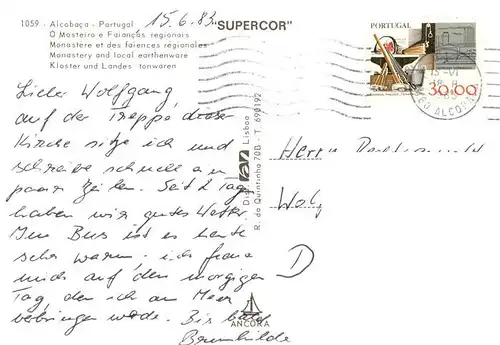 1059 - Alcobaça - Portugal 15.6.83
O Mosteiro e Faianças regionais
Monastere et des faiences régionales
Monastery and local earthenware
Kloster und Landes tonwaren
"SUPERCOR"
PORTUGAL
30.00
15-VI
ALCOBAÇA
Lieber Wolfgang,
auf der Treppe dieser
Kirche sitze ich und
schreibe schnell ein
paar Zeilen. Seit 2 Tagen
haben wir gutes Wetter.
Im Bus ist es heute
sehr warm. ich freue
mich auf den morgigen
Tag, den ich am Meer
verbringen werde. Bis bald
Brunhilde
Dist. Lisboa
R. da Quintinha 70B - T. 690192
ANCORA
Herrn
Wolf
D